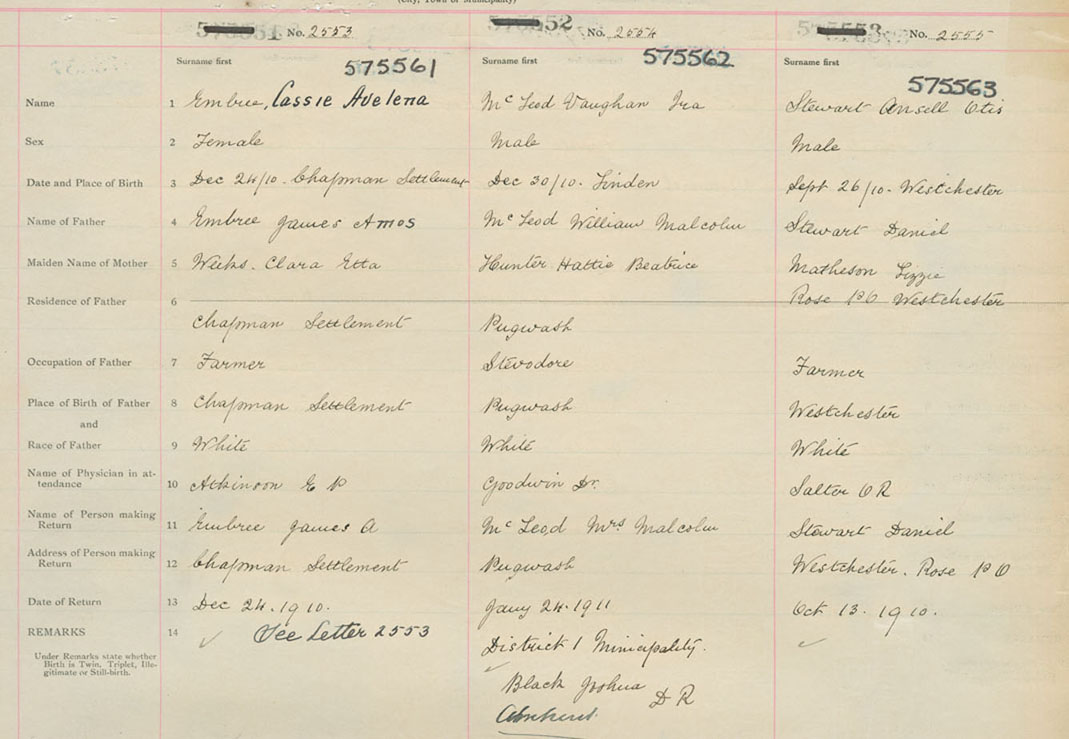 (City, Town or Municipality)
No. 2553
52 No. 2554
No. 2555
Surname first 575561
Surname first 575562
Surname first 575563
Name 1 Embree, Cassie Avelena Mc Leod Vaughan Ira Stewart Ansell Otis
Sex 2 Female Male Male
Date and Place of Birth 3 Dec 24/10. Chapman Settlement Dec 30/10. Linden Sept 26/10. Westchester
Name of Father 4 Embree James Amos Mc Leod William Malcolm Stewart Daniel
Maiden Name of Mother 5 Weeks. Clara Etta Hunter Hattie Beatrice Matheson Lizzie
Residence of Father 6 Chapman Settlement Pugwash Rose P O Westchester
Occupation of Father 7 Farmer Stevodore Farmer
Place of Birth of Father 8 Chapman Settlement Pugwash Westchester
and
Race of Father 9 White White White
Name of Physician in at-
tendance 10 Atkinson E P Goodwin Dr. Salter O R
Name of Person making
Return 11 Embree James A Mc Leod Mrs Malcolm Stewart Daniel
Address of Person making
Return 12 Chapman Settlement Pugwash Westchester. Rose P O
Date of Return 13 Dec 24. 1910. Jany 24. 1911 Oct 13. 1910.
REMARKS 14 See Letter 2553 District 1 Minicipality.
Under Remarks state whether
Birth is Twin, Triplet, Ille-
gitimate or Still-birth.
Black Joshua D R
Amherst.